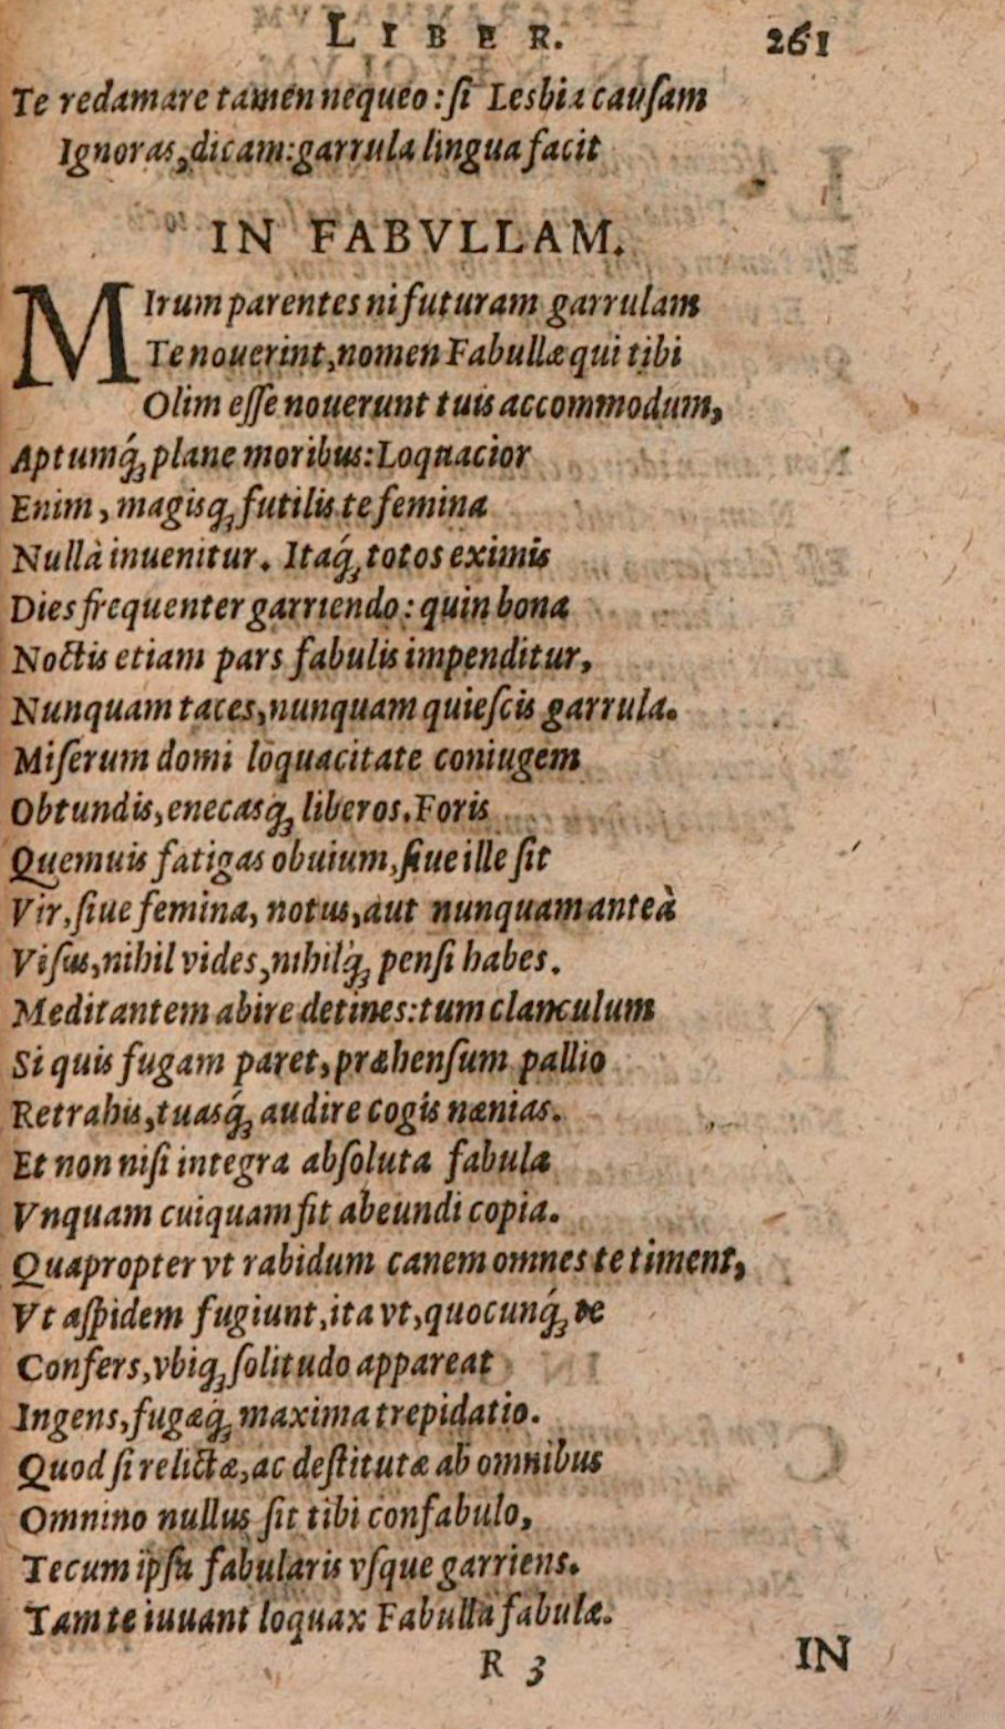 LIBER. 261
Te redamare tamen nequeo: ſi Lesbia cauſam
Ignoras, dicam: garrula lingua facit
IN FABVLLAM.
MIrum parentes ni futuram garrulam
Te nouerint, nomen Fabullæ qui tibi
Olim eſſe nouerunt tuis accommodum,
Aptumq́; plane moribus: Loquacior
Enim, magisq; futilis te femina
Nullà inuenitur. Itaq́; totos eximis
Dies frequenter garriendo: quin bona
Noctis etiam pars fabulis impenditur,
Nunquam taces, nunquam quieſcis garrula.
Miſerum domi loquacitate coniugem
Obtundis, enecasq́; liberos. Foris
Quemuis fatigas obuium, ſiue ille ſit
Vir, ſiue femina, notus, aut nunquam anteà
Viſus, nihil vides, nihilq́; penſi habes.
Meditantem abire detines: tum clanculum
Si quis fugam paret, præhenſum pallio
Retrahis, tuasq́; audire cogis nænias.
Et non niſi integra abſoluta fabula
Vnquam cuiquam fit abeundi copia.
Quapropter vt rabidum canem omnes te timent,
Vt aſpidem fugiunt, ita vt, quocunq́; te
Confers, vbiq; ſolitudo appareat
Ingens, fugæq́; maxima trepidatio.
Quod ſi relictæ, ac deſtitutæ ab omnibus
Omnino nullus ſit tibi confabulo,
Tecum ipſa fabularis vſque garriens.
Tam te iuuant loquax Fabulla fabulæ.
R 3 IN